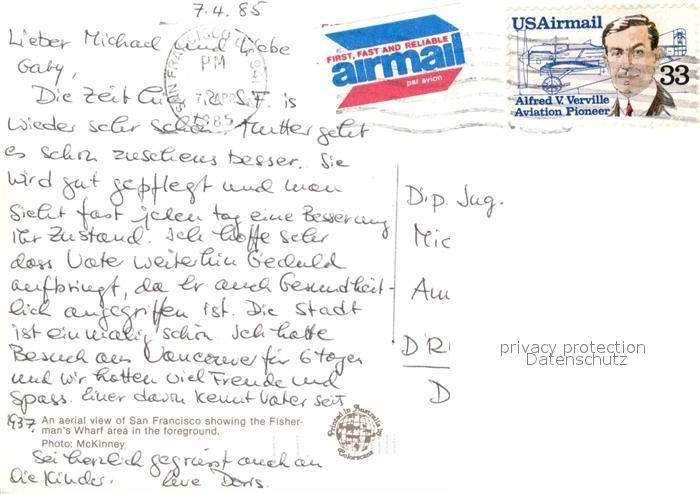 7.4.85
Lieber Michael und liebe
Gaby,
Die Zeit hier in S.F. is
wieder sehr schön. Mutter geht
es schon zusehens besser. Sie
wird gut gepflegt und man
sieht fast jeden tag eine Besserung
Ihr Zustand. Ich hoffe sehr
dass Vate weiterhin Geduld
aufbringt, da Er auch Gesundheit-
lich angegriffen ist. Die Stadt
ist einmalig schön. Ich hatte
Besuch aus Vancouver für 6 tage
und wir hatten viel Freude und
Spass. Einer davon kennt Vater seit
1937.
An aerial view of San Francisco showing the Fisher-
man's Wharf area in the foreground.
Photo: McKinney
Sei herzlich gegrüsst auch an
die Kinder. Eure Doris.
SAN FRANCISCO 941
PM
7 APR
1985
FIRST, FAST AND RELIABLE
airmail
par avion
USAirmail
33
Alfred V. Verville
Aviation Pioneer
Dip. Ing.
Mic
Am
DR
D
privacy protection
Datenschutz
Printed in Australia by
Colorscans